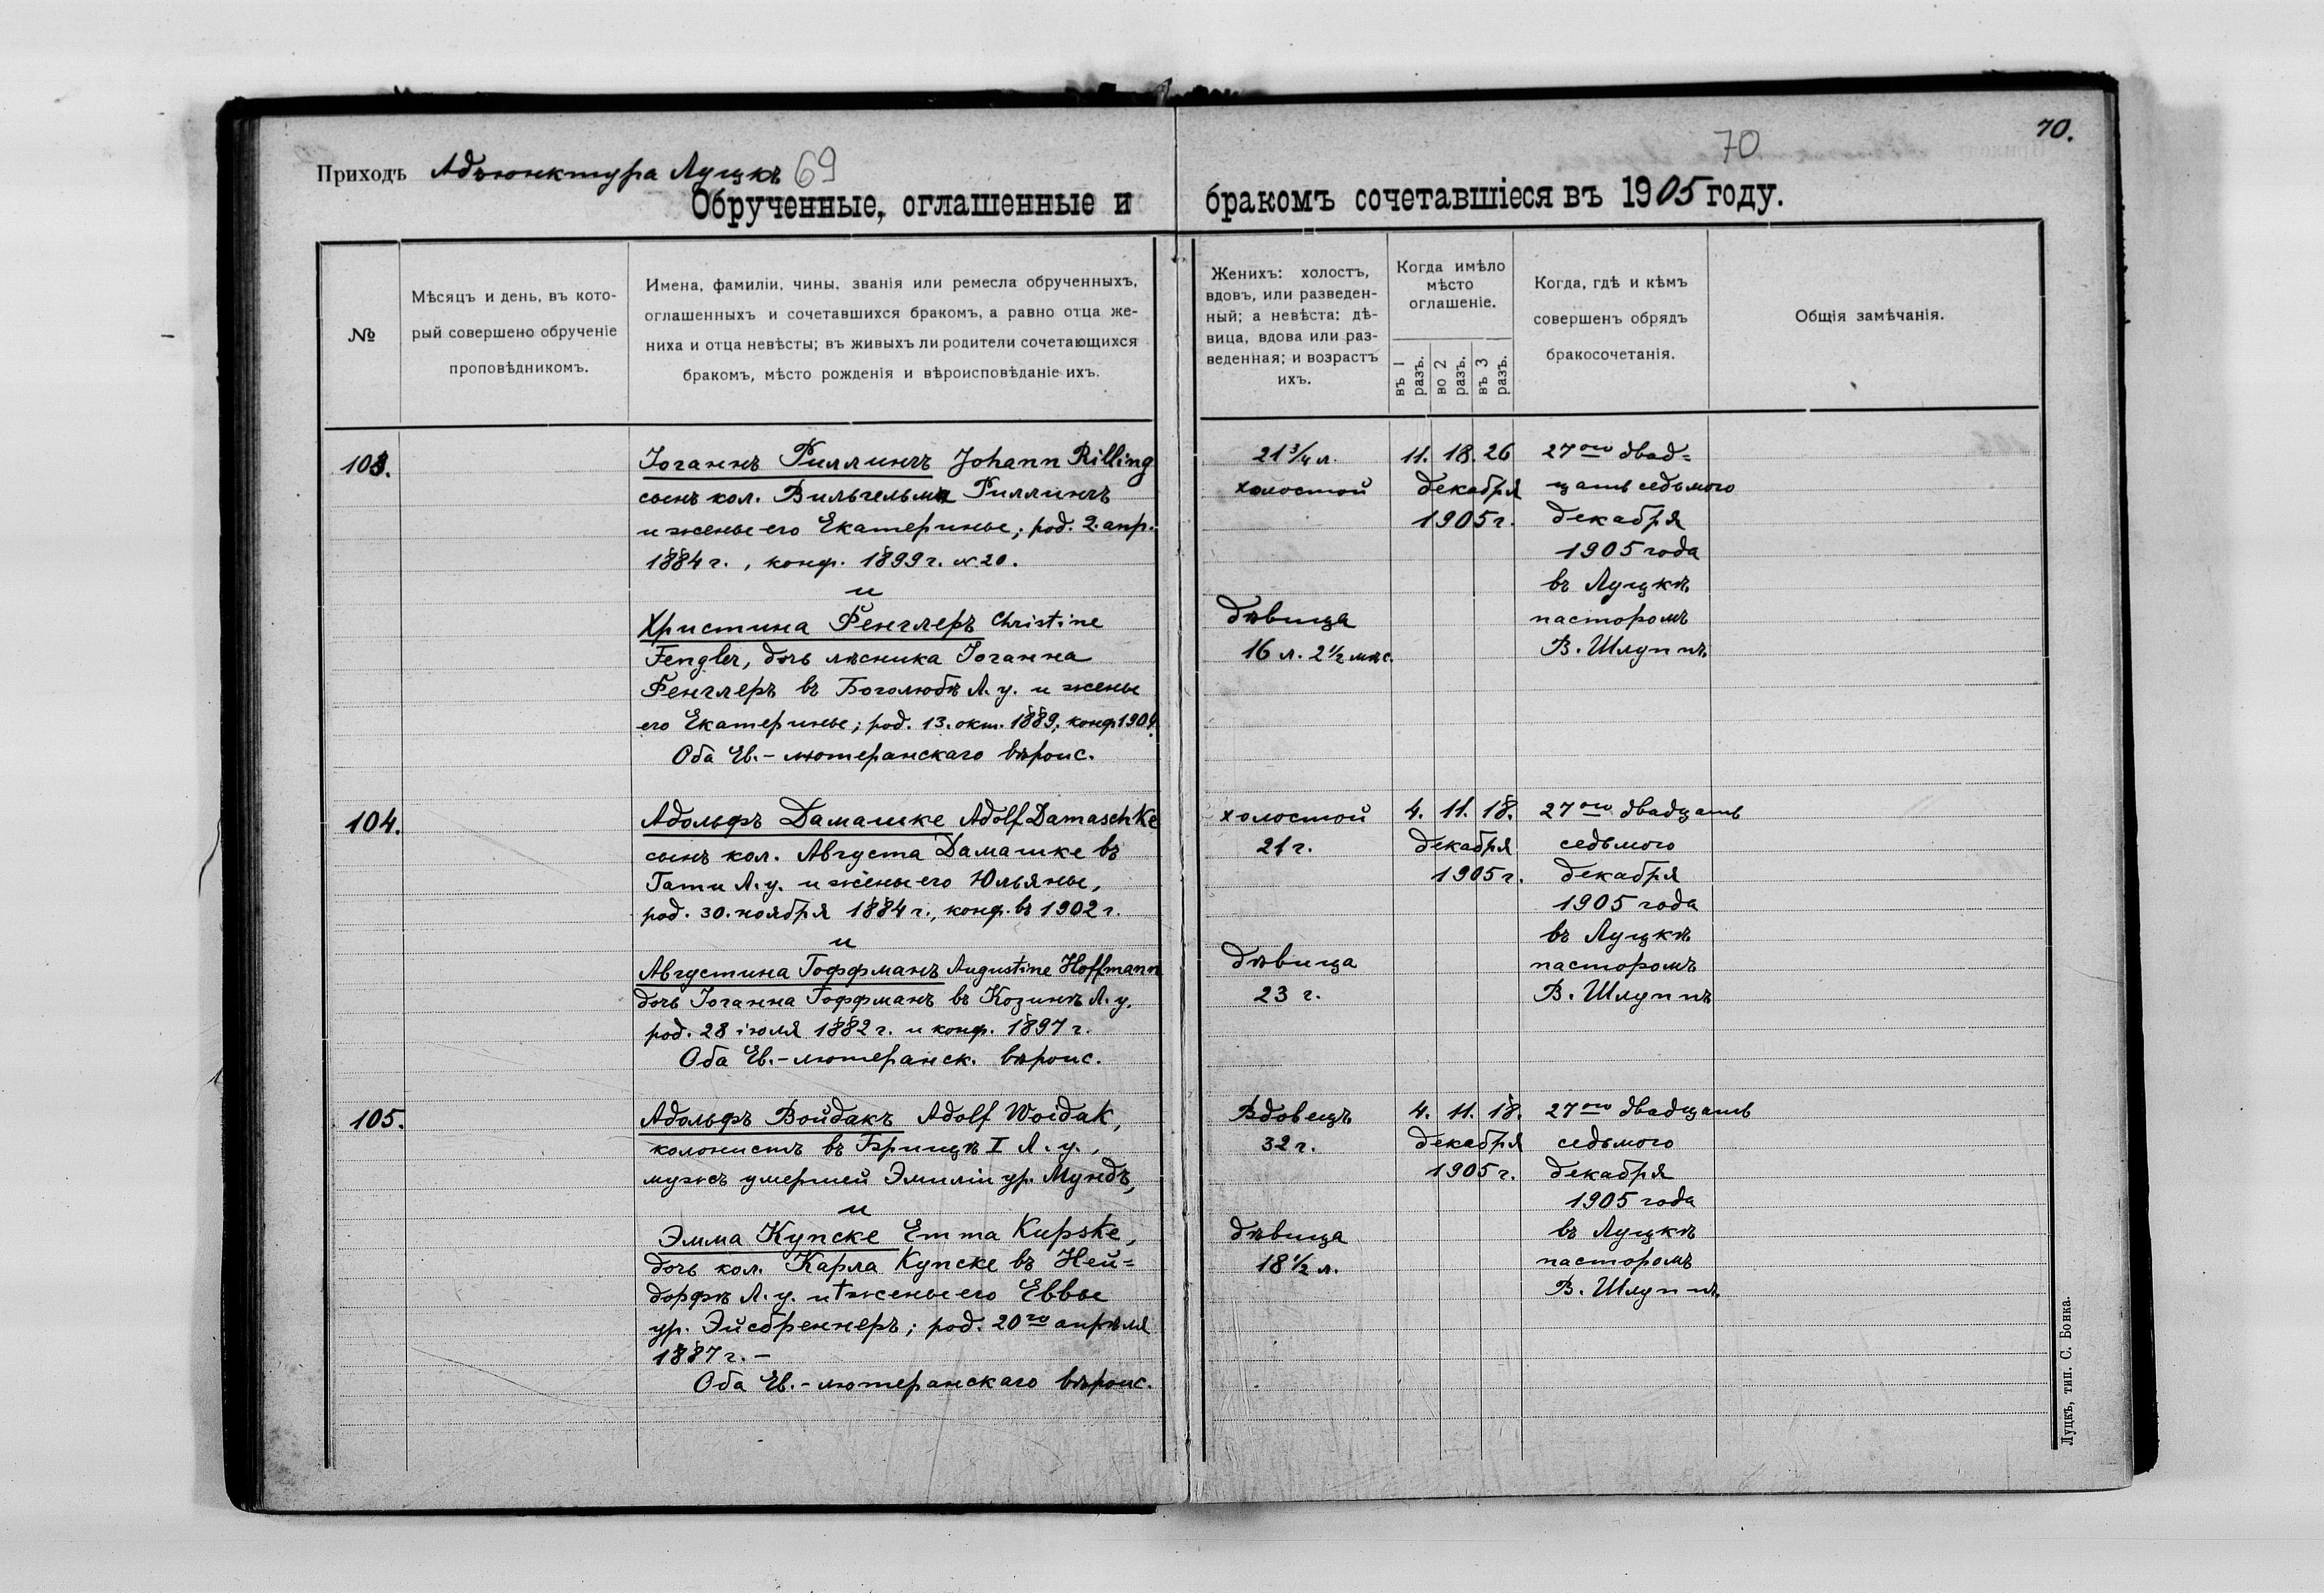 70.
70
Приходъ Адъюнктура Луцкъ 69
Обрученные, оглашенные и бракомъ сочетавшіеся въ 1905 году.
№
Мѣсяцъ и день, въ кото-
рый совершено обрученіе
проповѣдникомъ.
Имена, фамиліи, чины, званія или ремесла обрученныхъ,
оглашенныхъ и сочетавшихся бракомъ, а равно отца же-
ниха и отца невѣсты; въ живыхъ ли родители сочетающихся
бракомъ, мѣсто рожденія и вѣроисповѣданіе ихъ.
Женихъ: холостъ,
вдовъ, или разведен-
ный; а невѣста: дѣ-
вица, вдова или раз-
веденная; и возрастъ
ихъ.
Когда имѣло
мѣсто
оглашеніе.
въ 1 разъ.
во 2 разъ.
въ 3 разъ.
Когда, гдѣ и кѣмъ
совершенъ обрядъ
бракосочетанія.
Общія замѣчанія.
103.
Іоганнъ Риллингъ Johann Rilling
сынъ кол. Вильгельма Риллингъ
и жены его Екатерины; род. 2. апр.
1884 г., конф. 1899 г. № 20.
и
Христина Фенглеръ Christine
Fengler, дочь лѣсника Іоганна
Фенглеръ въ Боголюбѣ Л. у. и жены
его Екатерины; род. 13. окт. 1889, конф. 1904.
Оба Ев.-лютеранскаго вѣроис.
21 3/4 л.
холостой
дѣвица
16 л. 2 1/2 мѣс.
11. 18. 26
декабря
1905 г.
27ого двад=
цать седьмого
декабря
1905 года
въ Луцкѣ
пасторомъ
В. Шлуппъ
104.
Адольфъ Дамашке Adolf Damaschke
сынъ кол. Августа Дамашке въ
Гати Л. у. и жены его Юльяны,
род. 30. ноября 1884 г., конф. въ 1902 г.
и
Августина Гоффманъ Augustine Hoffmann
дочь Іоганна Гоффманъ въ Козинѣ Л. у.
род. 28 іюля 1882 г. и конф. 1897 г.
Оба Ев.-лютеранск. вѣроис.
холостой
21 г.
дѣвица
23 г.
4. 11. 18.
декабря
1905 г.
27ого двадцать
седьмого
декабря
1905 года
въ Луцкѣ
пасторомъ
В. Шлуппъ
105.
Адольфъ Войдакъ Adolf Woidak,
колонистъ въ Брищѣ I Л. у.,
мужъ умершей Эмиліи ур. Мундъ,
и
Эмма Купске Emma Kupske,
дочь кол. Карла Купске въ Ней=
дорфѣ Л. у. и † жены его Еввы
ур. Эйсбреннеръ; род. 20го апрѣля
1887 г. –
Оба Ев.-лютеранскаго вѣроис.
Вдовецъ
32 г.
дѣвица
18 1/2 л.
4. 11. 18.
декабря
1905 г.
27ого двадцать
седьмого
декабря
1905 года
въ Луцкѣ
пасторомъ
В. Шлуппъ.
Луцкъ, тип. С. Бонка.